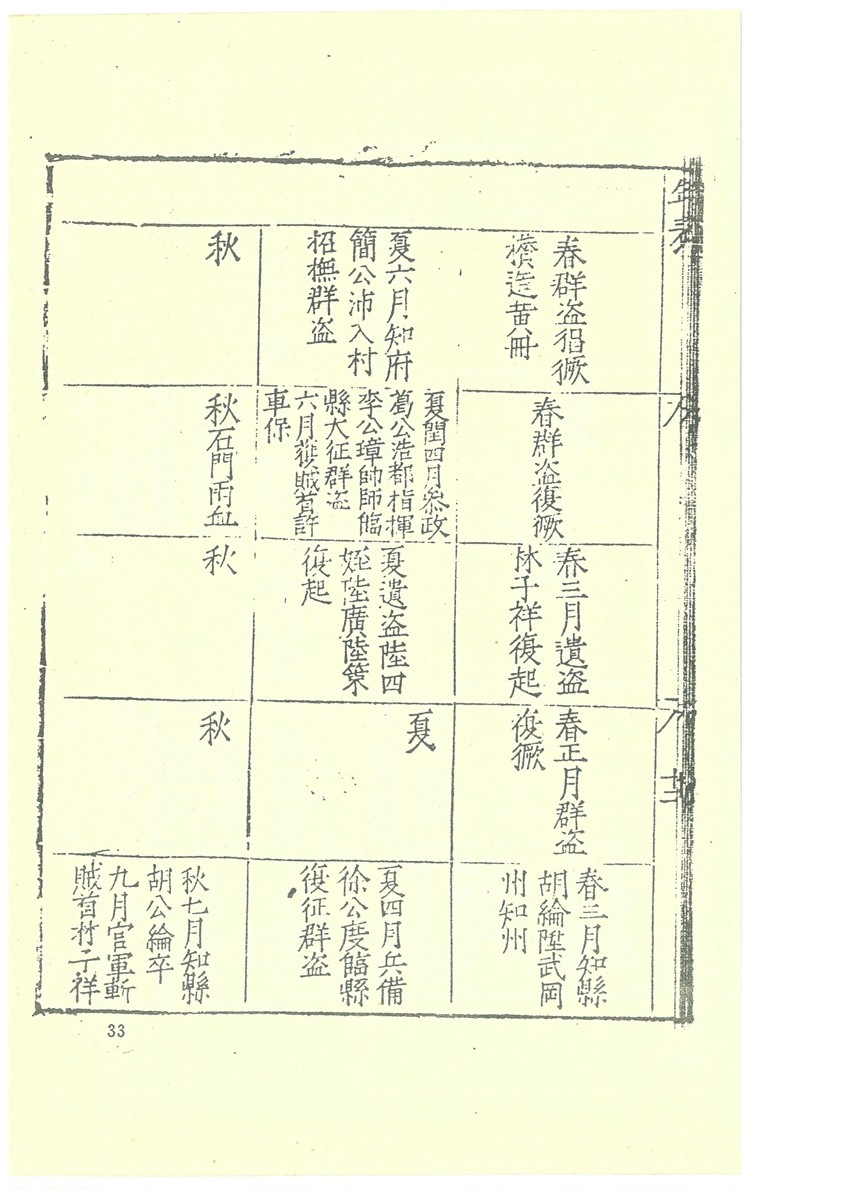 年表
春群盗猖獗
攢造黃冊
夏六月知府
簡公沛入村
招撫群盗
秋
春群盗復獗
夏閏四月叅政
葛公浩都指揮
李公璋帥師臨
縣大征群盗
六月獲賊首許
車保
秋石門雨血
春三月遺盗
林子祥復起
夏遺盗陸四
姪陸廣陸第
復起
秋
春正月群盗
復獗
夏
秋
春三月知縣
胡綸陞武岡
州知州
夏四月兵備
徐公度臨縣
復征群盗
秋七月知縣
胡公綸卒
九月官軍斬
賊首林子祥
33